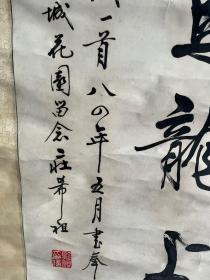 且龍上
一首八〇年五月書奉
城花園留念 莊希祖